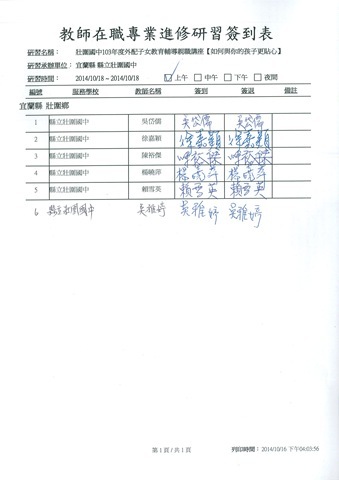 教師在職專業進修研習簽到表
研習名稱： 壯圍國中103年度外配子女教育輔導親職講座【如何與你的孩子更貼心】
研習承辦單位： 宜蘭縣 縣立壯圍國中
研習時間： 2014/10/18 ~ 2014/10/18 ☑上午 □中午 □下午 □夜間
編號 服務學校 教師名稱 簽到 簽退 備註
宜蘭縣 壯圍鄉
1 縣立壯圍國中 吳岱儒 吳岱儒 吳岱儒
2 縣立壯圍國中 徐嘉穎 徐嘉穎 徐嘉穎
3 縣立壯圍國中 陳裕傑 陳裕傑 陳裕傑
4 縣立壯圍國中 楊曉萍 楊曉萍 楊曉萍
5 縣立壯圍國中 賴雪英 賴雪英 賴雪英
6 縣立壯圍國中 吳雅婷 吳雅婷 吳雅婷
第 1 頁 / 共 1 頁 列印時間：2014/10/16 下午04:03:56